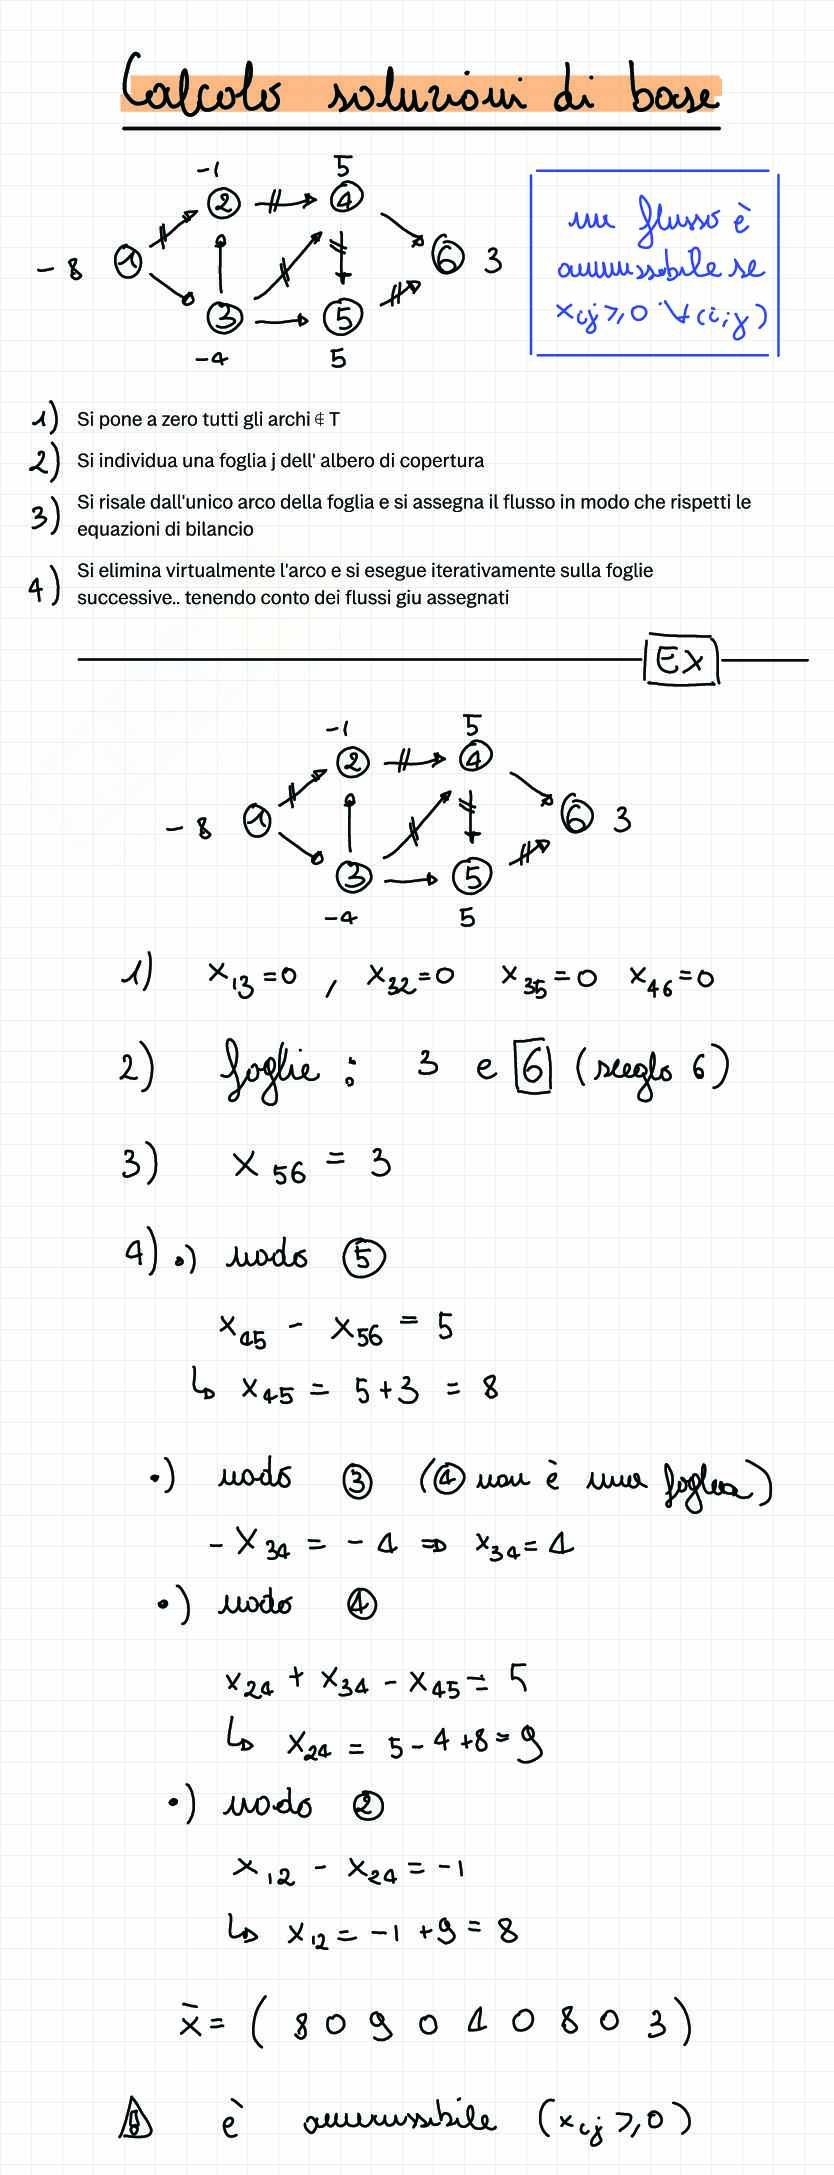 Calcolo soluzioni di base
-1 5
2 4
-8 1 6 3
3 5
-4 5
un flusso è
ammissibile se
xij ≥ 0 ∀ (i,j)
1) Si pone a zero tutti gli archi ∉ T
2) Si individua una foglia j dell' albero di copertura
3) Si risale dall'unico arco della foglia e si assegna il flusso in modo che rispetti le
equazioni di bilancio
4) Si elimina virtualmente l'arco e si esegue iterativamente sulla foglie
successive.. tenendo conto dei flussi giu assegnati
Ex
-1 5
2 4
-8 1 6 3
3 5
-4 5
1) x13 = 0 , x32 = 0 x35 = 0 x46 = 0
2) foglie : 3 e 6 (sceglo 6)
3) x56 = 3
4) •) nodo 5
x45 - x56 = 5
↳ x45 = 5+3 = 8
•) nodo 3 (4 non è una foglia)
-x34 = -4 ⇒ x34 = 4
•) nodo 4
x24 + x34 - x45 = 5
↳ x24 = 5-4+8 = 9
•) nodo 2
x12 - x24 = -1
↳ x12 = -1 +9 = 8
x̄ = ( 8 0 9 0 4 0 8 0 3 )
è ammissibile (xij ≥ 0)